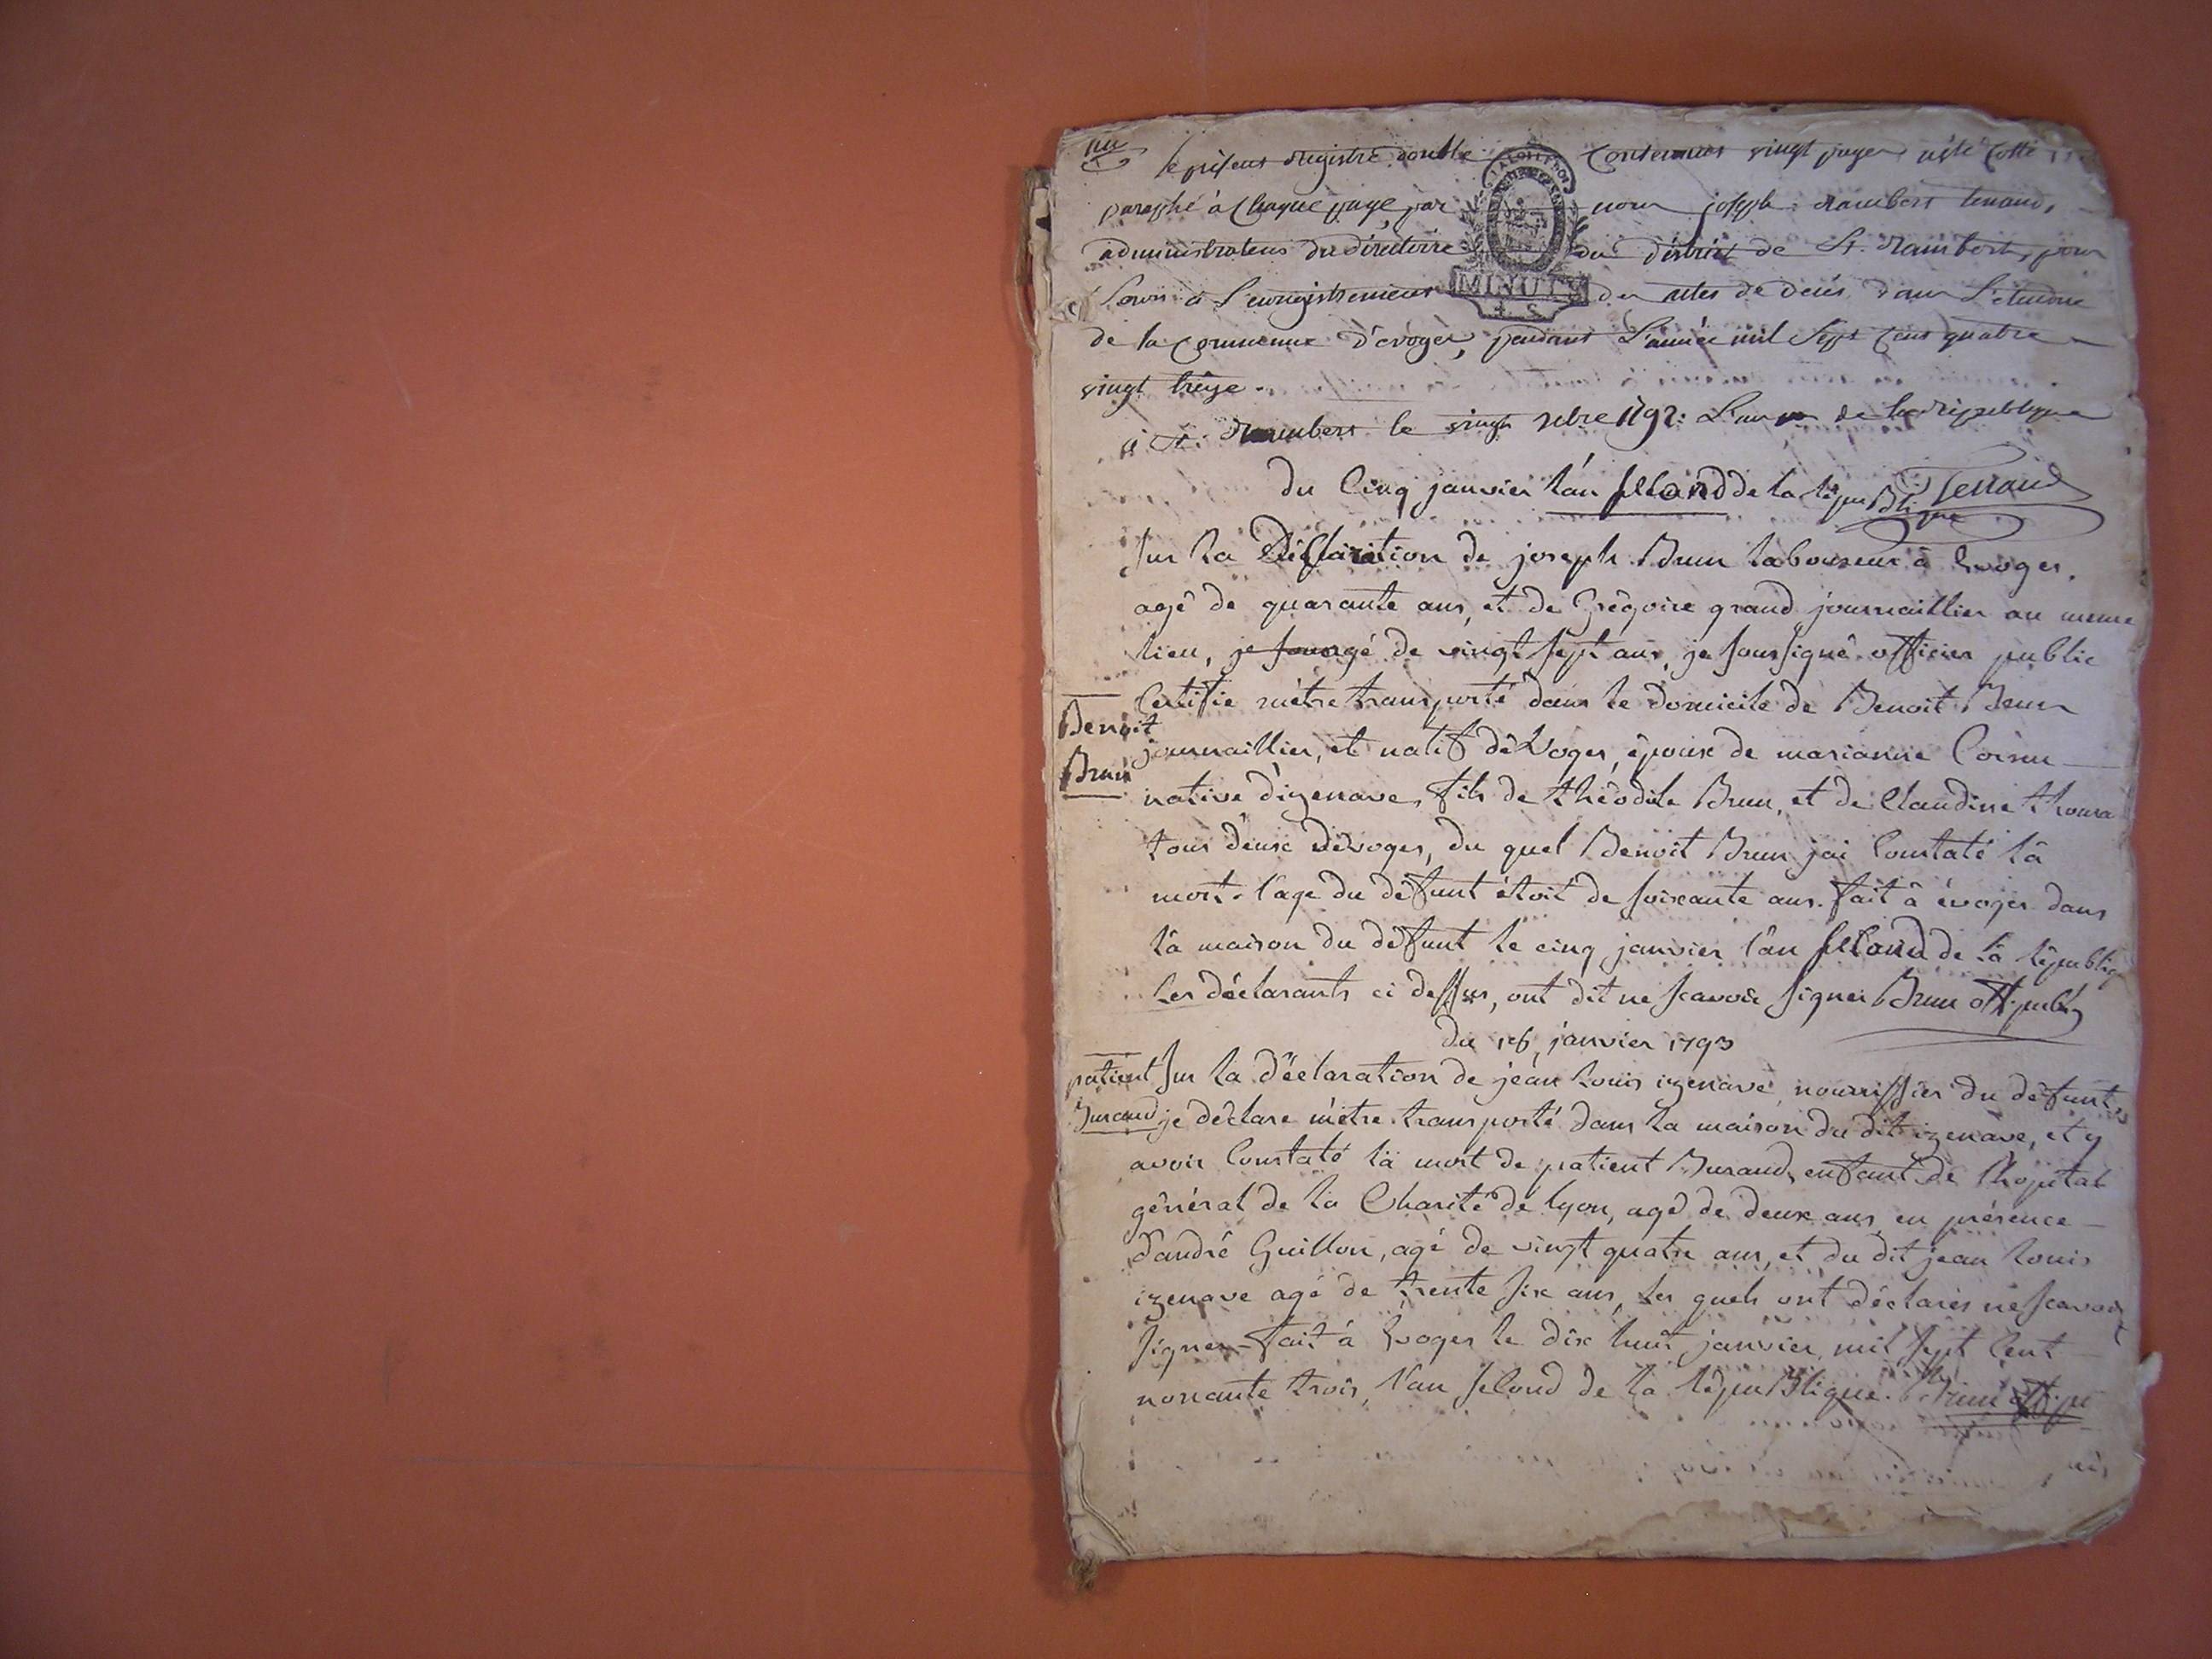 un
le présent régistre double contenant vingt pages, a été cotté et
paraphé à chaque page, par nous joseph rambert tenand,
administrateur du directoire du district de St. rambert, pour
servir à l'enregistrement des actes de décès, dans l'étendue
de la commune d'évoges, pendant l'année mil sept cent quatre
vingt treize.
à St. rambert le vingt xbre 1792. L'an 1er de la république
LA LOI ET LE ROI
MINUTE
4 S
du cinq janvier l'an second de la république Tenand
sur la déclaration de joseph Brun laboureur à Evoges,
agé de quarante ans, et de Grégoire grand journaillier au meme
lieu, agé de vingt sept ans, je soussigné officier public
certifie mêtre transporté dans le domicile de Benoit Brun
Benoit
Brun
journaillier, et natif dêvoges, époux de marianne Cornu
native d'izenave, fils de théodule Brun, et de claudine
tous deux dévoges, du quel Benoit Brun jai constaté la
mort. l'age du défunt étoit de soixante ans. fait à évoges dans
la maison du défunt le cinq janvier l'an second de la républiq
les déclarants ci dessus, ont dit ne scavoir signer Brun off. public
du 18 janvier 1793
patient
Buraud
Sur la déclaration de jean louis izenave, nourrissier du défunt,
je déclare mêtre transporté dans la maison du dit izenave, et y
avoir constaté la mort de patient Buraud, enfant de l'hopital
général de la Charité de lyon, agé de deux ans, en présence
d'andré Guillon, agé de vingt quatre ans, et du dit jean louis
izenave agé de trente six ans, les quels ont déclarés ne scavoir
signer. fait à Evoges le dix huit janvier, mil sept cent
nonante trois, l'an second de la république. Brun off. pu